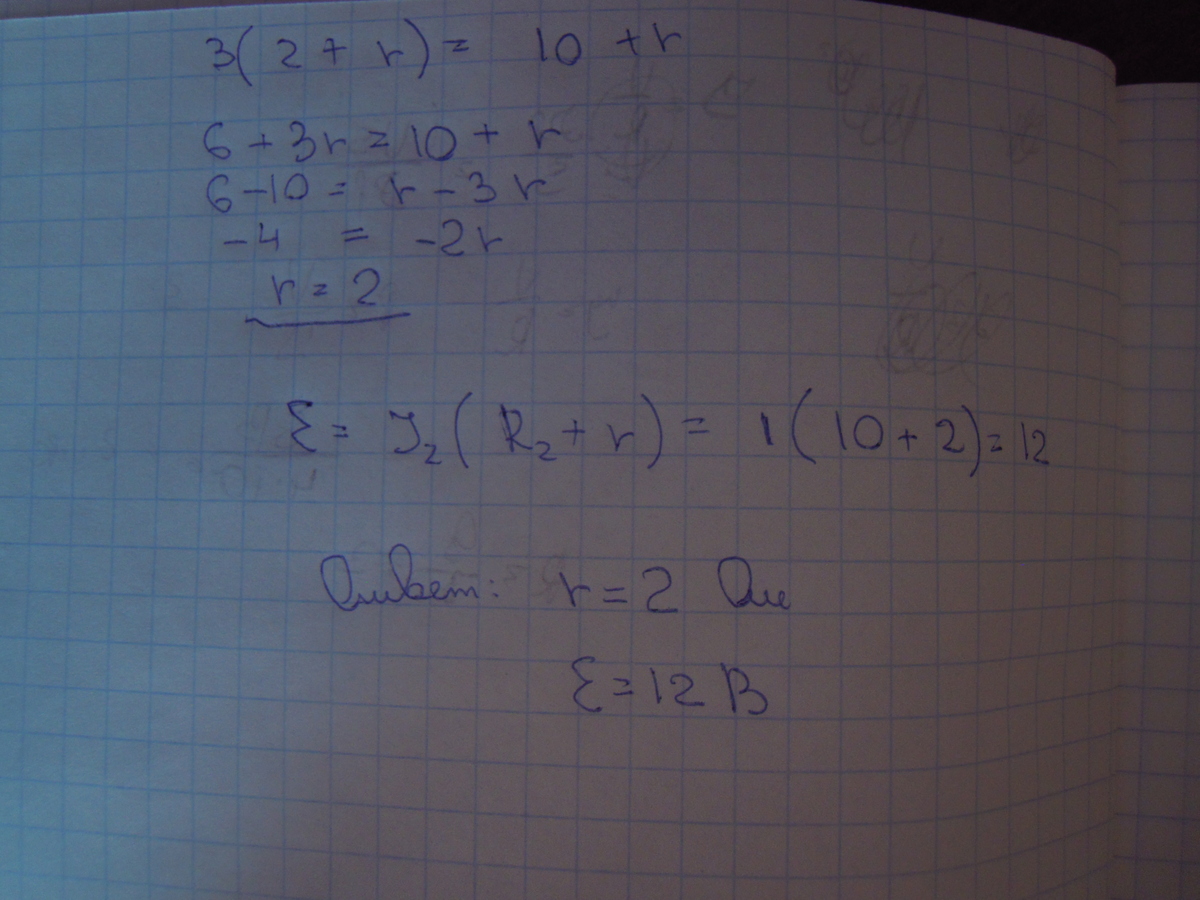 3(2 + r) = 10 + r
6 + 3r = 10 + r
6 - 10 = r - 3r
-4 = -2r
r = 2
ℰ = I₂(R₂ + r) = 1(10 + 2) = 12
Ответ: r = 2 Ом
ℰ = 12 В